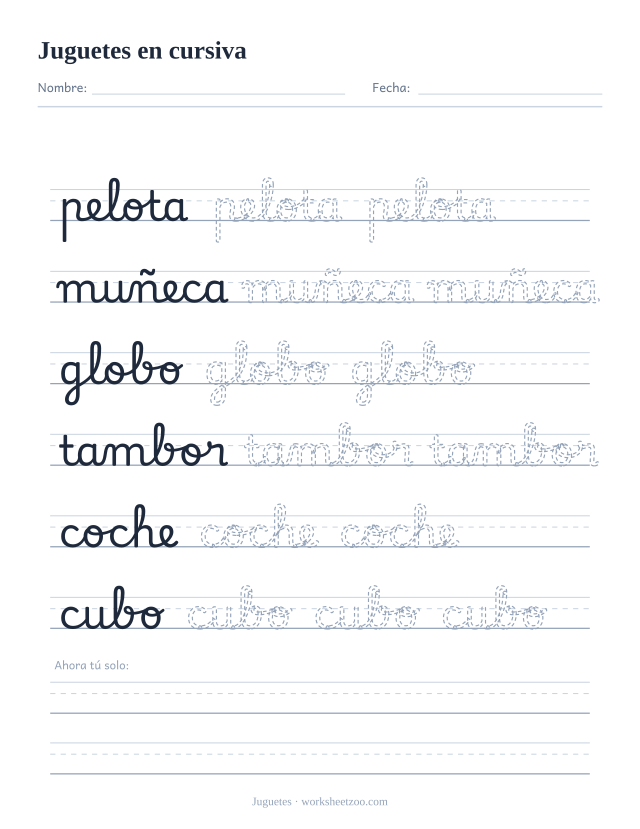 Juguetes en cursiva
Nombre: Fecha:
pelota pelota pelota
muñeca muñeca muñeca
globo globo globo
tambor tambor tambor
coche coche coche
cubo cubo cubo cubo
Ahora tú solo:
Juguetes · worksheetzoo.com